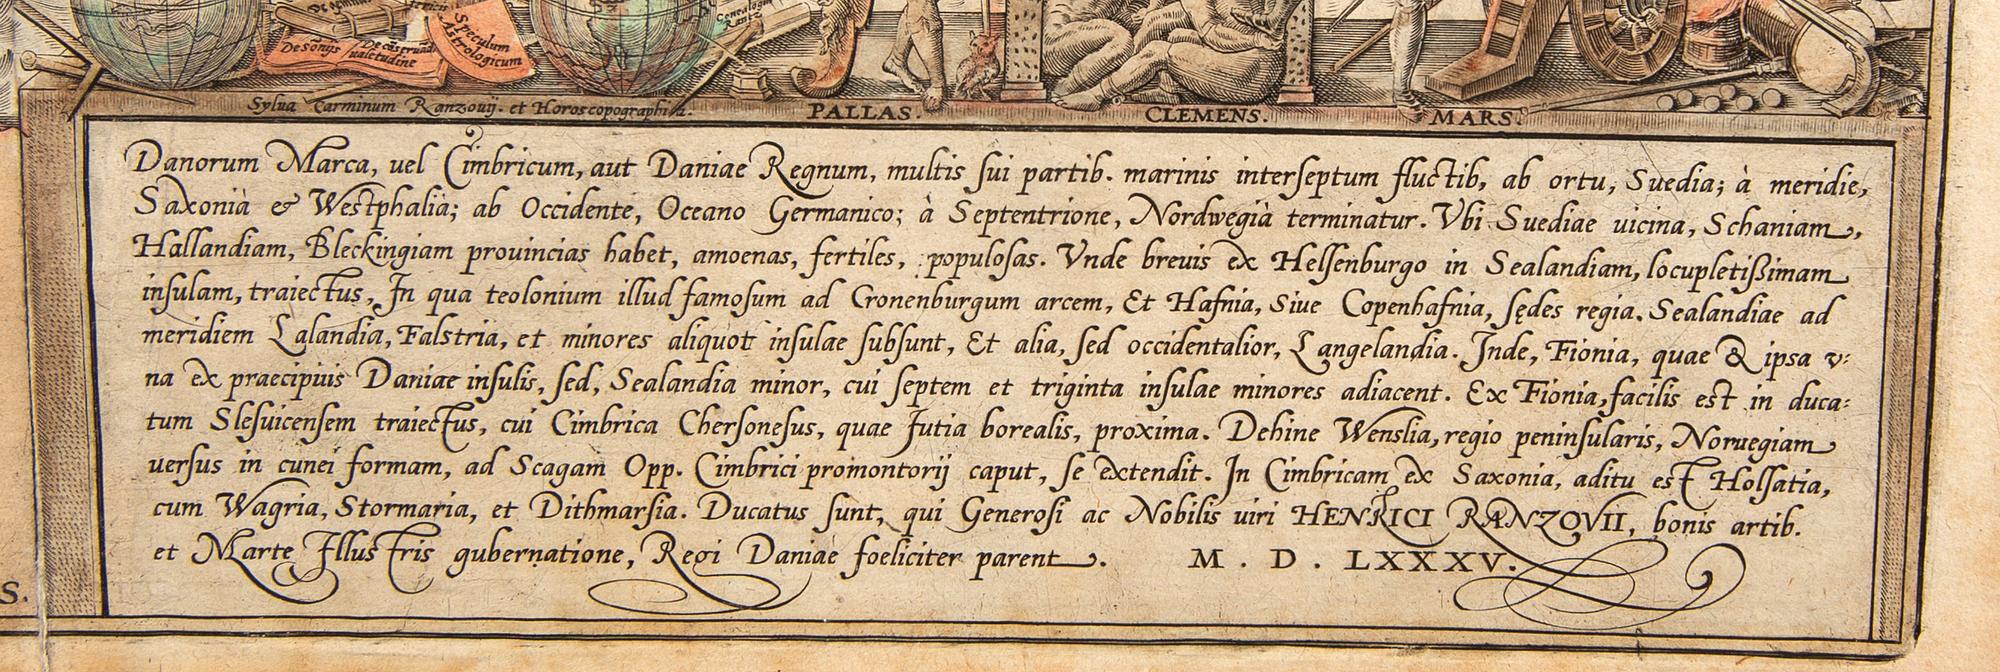 De somnijs
De conservand valetudine
Speculum Astrologicum
Sylva Carminum Ranzouij. et Horoscopographia.
PALLAS.
CLEMENS.
MARS.
Danorum Marca, uel Cimbricum, aut Daniae Regnum, multis sui partib. marinis interseptum fluctib, ab ortu, Suedia; à meridie,
Saxonia & Westphalia; ab Occidente, Oceano Germanico; à Septentrione, Nordwegia terminatur. Vbi Suediae uicina, Schaniam,
Hallandiam, Bleckingiam prouincias habet, amoenas, fertiles, populosas. Vnde breuis ex Helsenburgo in Sealandiam, locupletißimam
insulam, traiectus, In qua teolonium illud famosum ad Cronenburgum arcem, Et Hafnia, Siue Copenhafnia, sędes regia. Sealandiae ad
meridiem Lalandia, Falstria, et minores aliquot insulae subsunt, Et alia, sed occidentalior, Langelandia. Inde, Fionia, quae & ipsa v:
na ex praecipuis Daniae insulis, sed, Sealandia minor, cui septem et triginta insulae minores adiacent. Ex Fionia, facilis est in duca:
tum Slesuicensem traiectus, cui Cimbrica Chersonesus, quae Iutia borealis, proxima. Dehine Wenslia, regio peninsularis, Noruegiam
uersus in cunei formam, ad Scagam Opp. Cimbrici promontorij caput, se extendit. In Cimbricam ex Saxonia, aditu est Holsatia,
cum Wagria, Stormaria, et Dithmarsia. Ducatus sunt, qui Generosi ac Nobilis uiri HENRICI RANZOVII, bonis artib.
et Marte Illustris gubernatione, Regi Daniae foeliciter parent. M. D. LXXXV.
S.